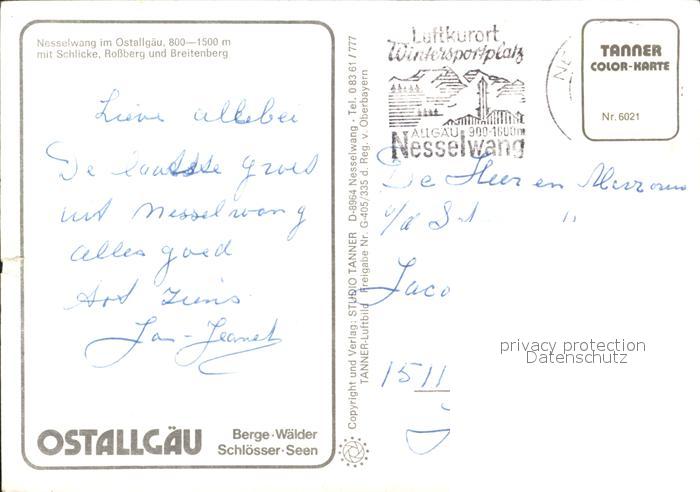 Nesselwang im Ostallgäu, 800—1500 m
mit Schlicke, Roßberg und Breitenberg
Lieve allebei
De laatste groet
uit Nesselwang
alles goed
tot ziens
Jan-Jeanet
OSTALLGÄU
Berge·Wälder
Schlösser·Seen
Copyright und Verlag: STUDIO TANNER D-8964 Nesselwang · Tel. 0 83 61 / 777
TANNER-Luftbild Freigabe Nr. G-405/335 d. Reg. v. Oberbayern
Luftkurort
Wintersportplatz
ALLGÄU 900-1600m
Nesselwang
TANNER
COLOR-KARTE
Nr. 6021
De Heer en Mevrouw
Jaco
1511
privacy protection
Datenschutz